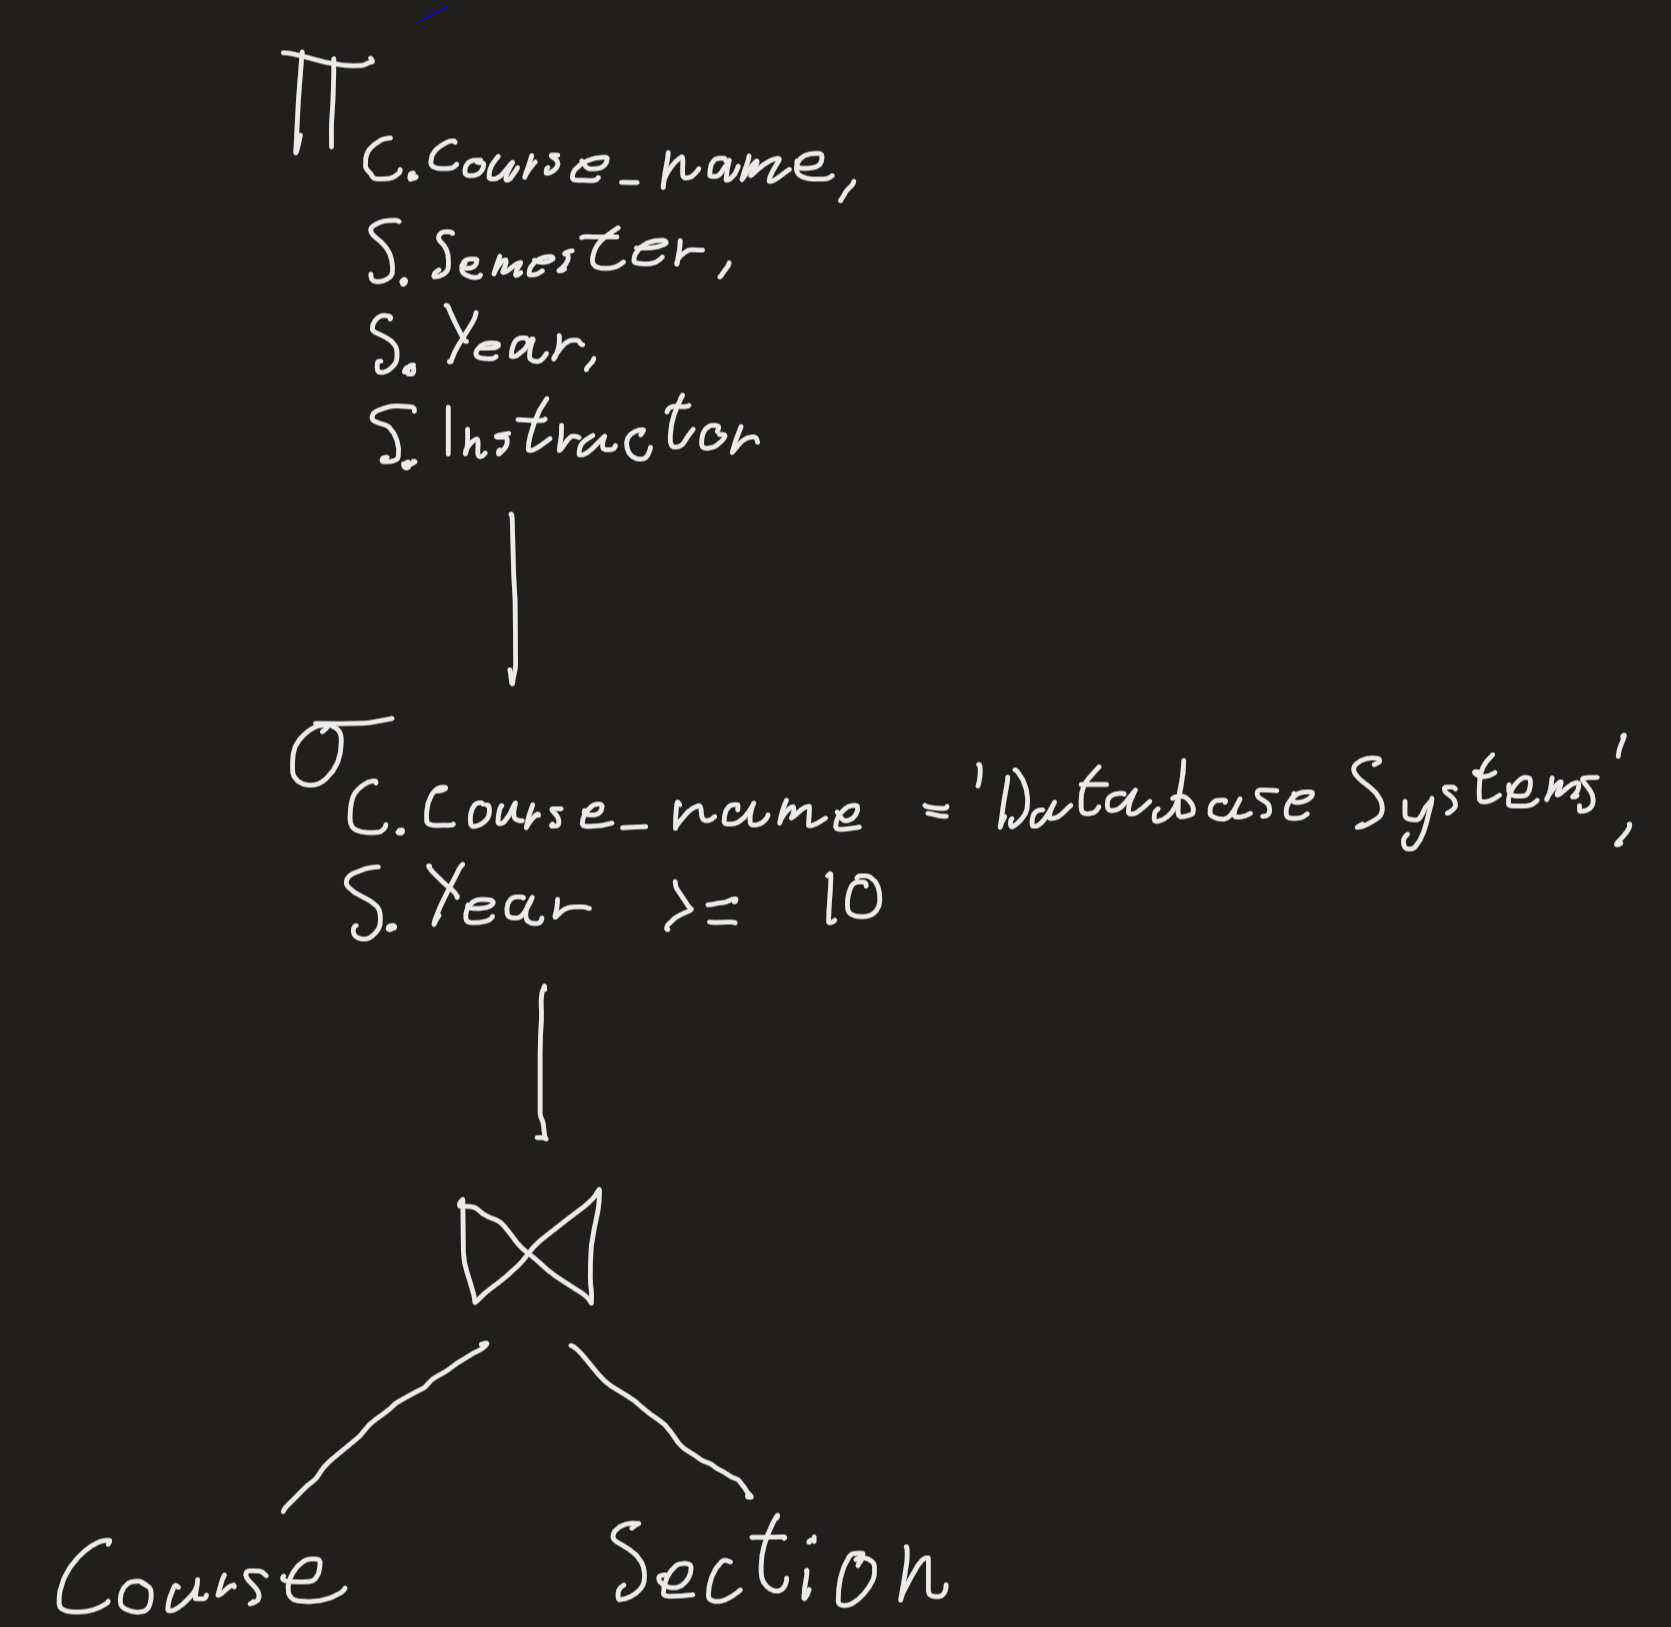 π C.Course_name,
S.Semester,
S.Year,
S.Instractor
σ C.Course_name = 'Database Systems',
S.Year >= 10
⋈
Course Section